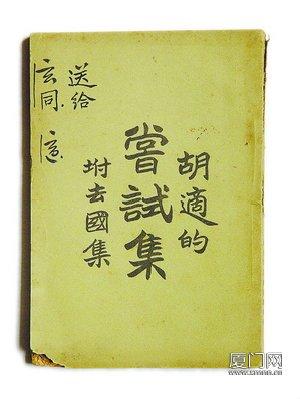 胡適的
嘗試集
坿去國集
送給
玄同
適
厦门网
www.xmnn.cn